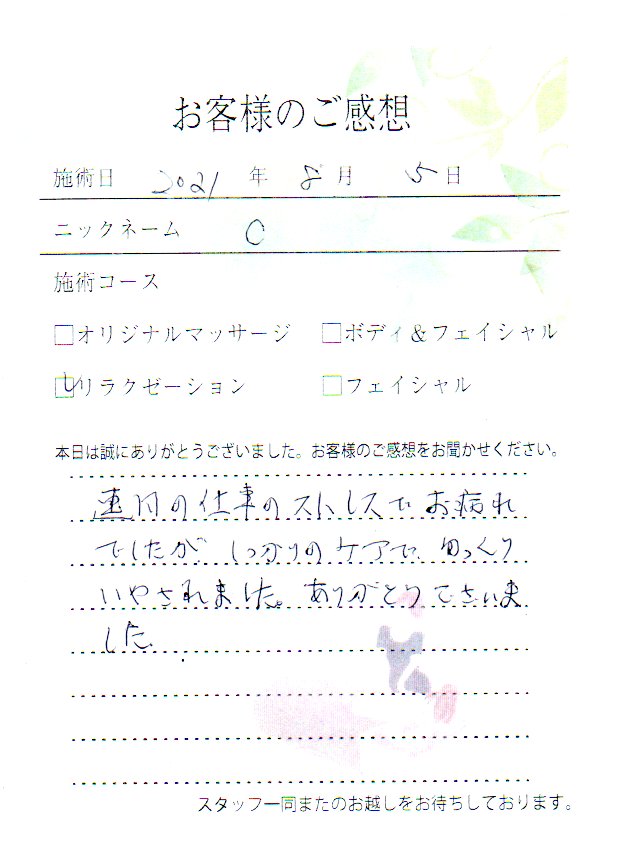 お客様のご感想
施術日 2021 年 8 月 5 日
ニックネーム C
施術コース
□オリジナルマッサージ □ボディ&フェイシャル
☑リラクゼーション □フェイシャル
本日は誠にありがとうございました。お客様のご感想をお聞かせください。
連日の仕事のストレスでお病れ
でしたが しっかりのケアで、ゆっくり
いやされました。ありがとうございま
した。
スタッフ一同またのお越しをお待ちしております。